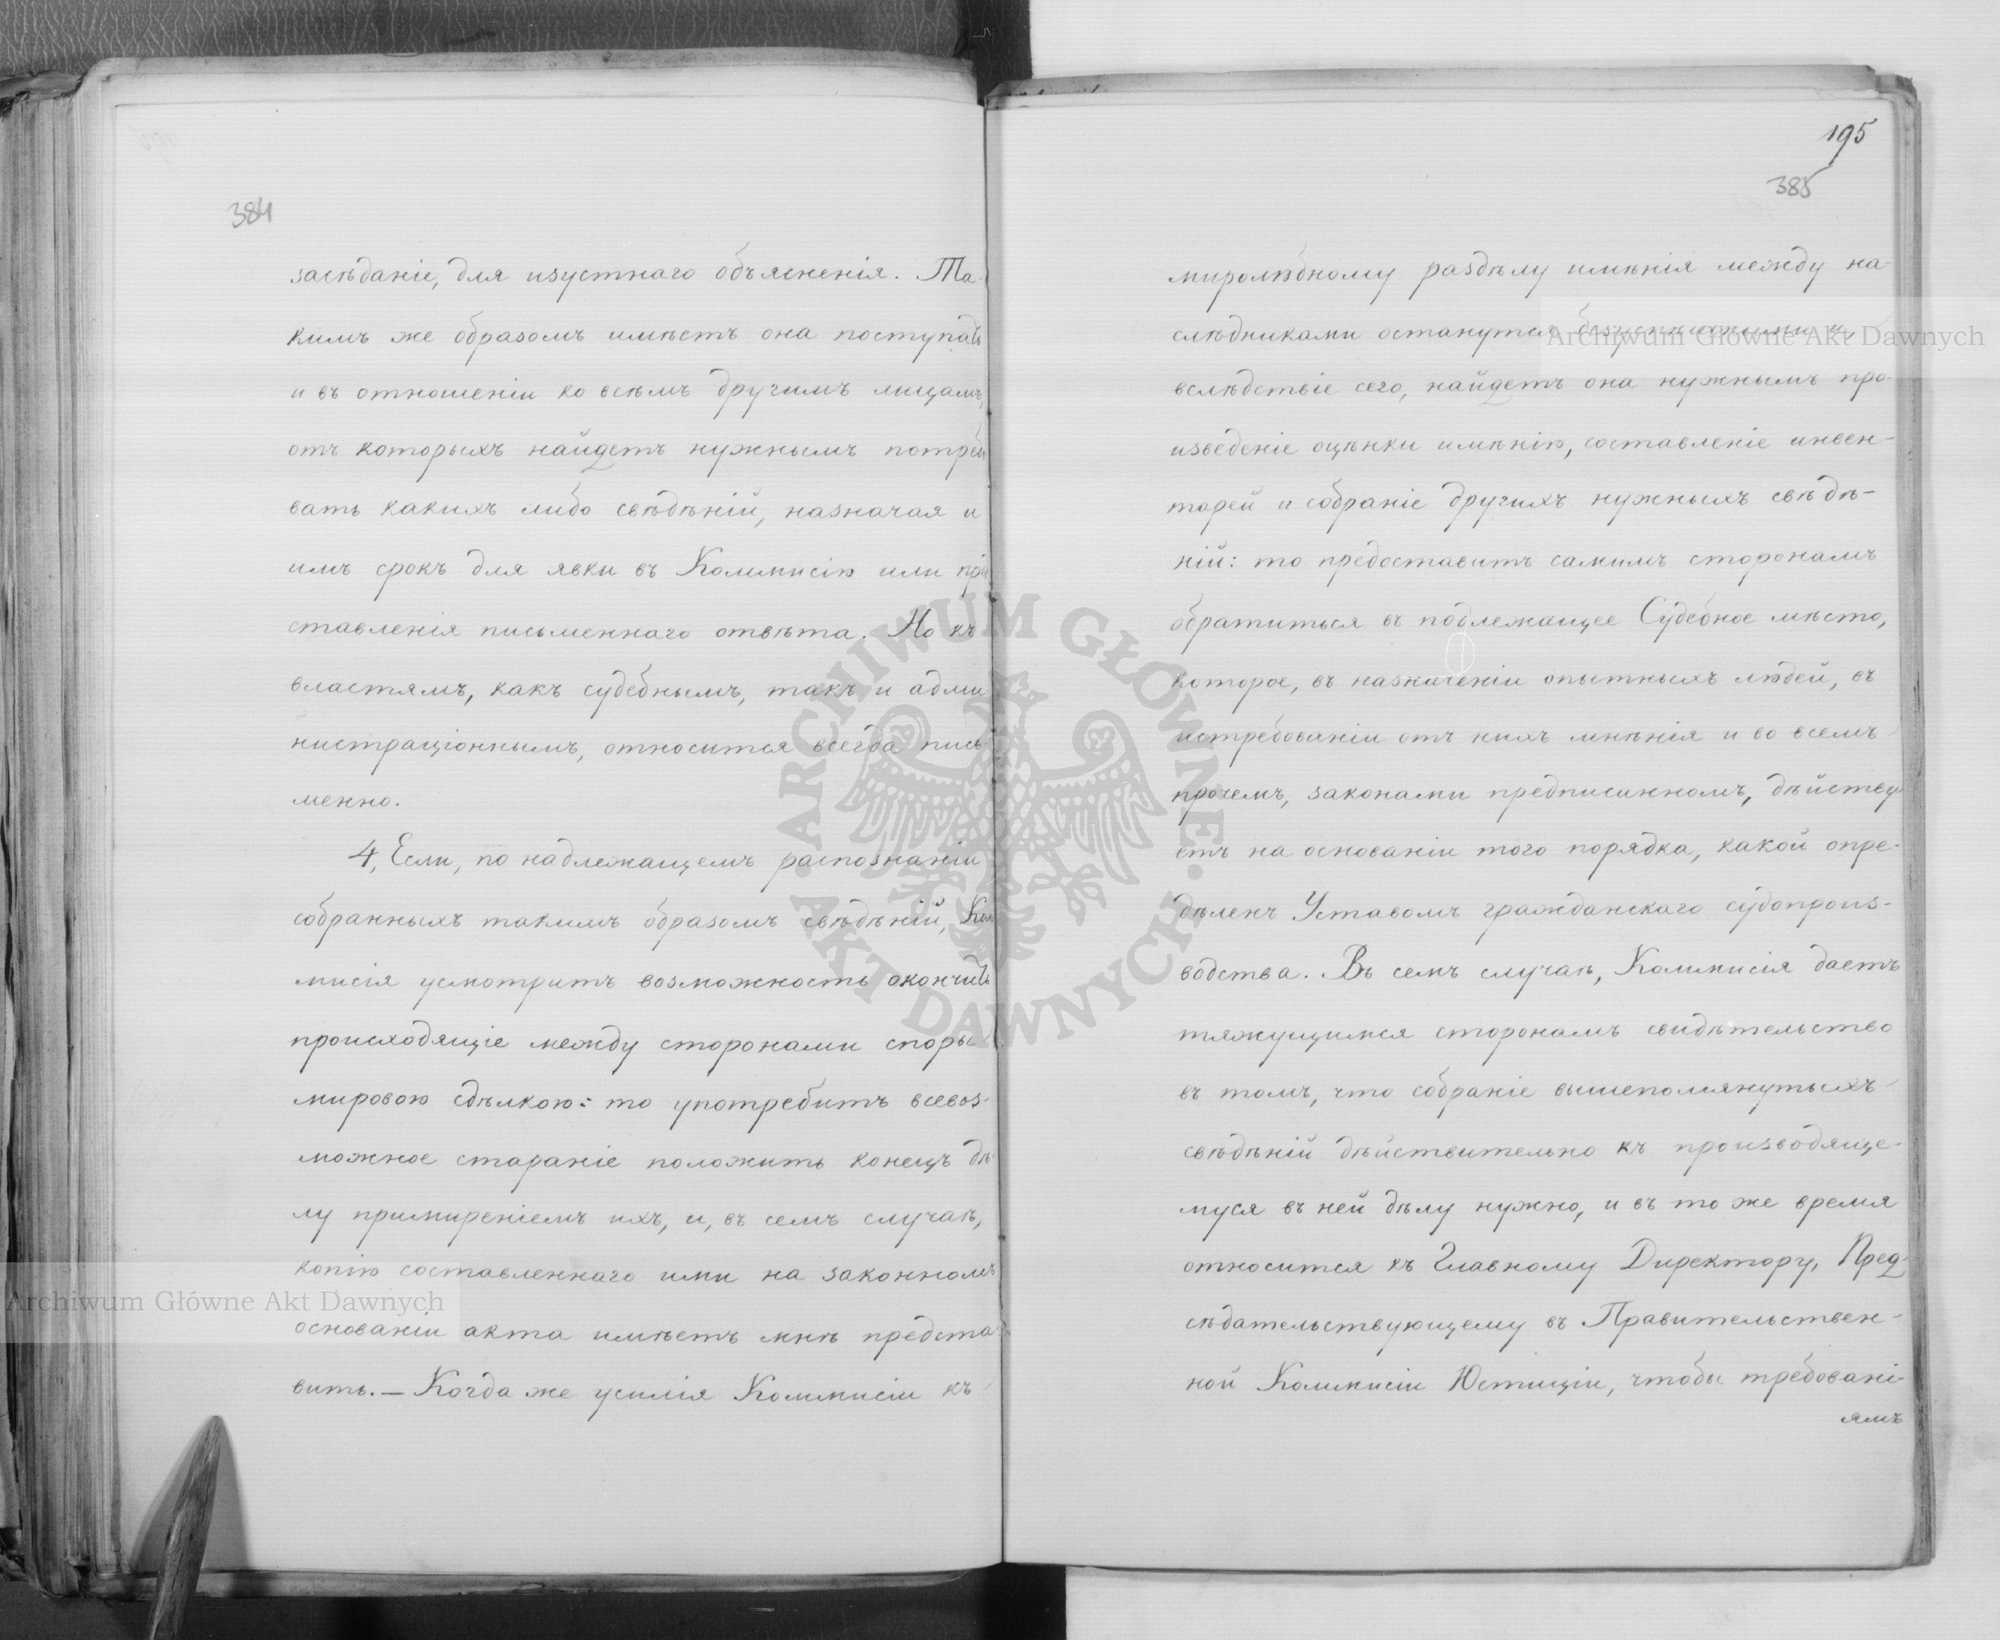 384
засѣданіе, для изустнаго объясненія. Та-
кимъ же образомъ имѣетъ она поступать
и въ отношеніи ко всѣмъ другимъ лицамъ,
отъ которыхъ найдетъ нужнымъ потребо
вать какихъ либо свѣдѣній, назначая и
имъ срокъ для явки въ Коммисію или
ставленія письменнаго отвѣта. Но къ
властямъ, какъ судебнымъ, такъ и адми
нистраціоннымъ, относится всегда пись
менно.
4, Если, по надлежащемъ распознаніи
собранныхъ такимъ образомъ свѣдѣній, Ком
мисія усмотритъ возможность окончить
происходящіе между сторонами споры
мировою сдѣлкою: то употребитъ всевоз-
можное стараніе положить конецъ дѣ-
лу примиреніемъ ихъ, и, въ семъ случаѣ,
копію составленнаго ими на законномъ
основаніи акта имѣетъ мнѣ предста
вить. — Когда же усилія Коммисіи къ
195
385
миролюбному раздѣлу имѣнія между на-
слѣдниками останутся безуспѣшными и
вслѣдствіе сего, найдетъ она нужнымъ про-
изведеніе оцѣнки имѣнію, составленіе инвен-
тарей и собраніе другихъ нужныхъ свѣдѣ-
ній: то предоставитъ самимъ сторонамъ
обратиться въ подлежащее Судебное мѣсто,
которое, въ назначеніи опытныхъ людей, въ
истребованіи отъ нихъ мнѣнія и во всемъ
прочемъ, законами предписанномъ, дѣйству
етъ на основаніи того порядка, какой опре-
дѣленъ Уставомъ гражданскаго судопроиз-
водства. Въ семъ случаѣ, Коммисія даетъ
тяжущимся сторонамъ свидѣтельство
въ томъ, что собраніе вышепомянутыхъ
свѣдѣній дѣйствительно къ производяще-
муся въ ней дѣлу нужно, и въ то же время
относится къ Главному Директору, Пред-
сѣдательствующему въ Правительствен-
ной Коммисіи Юстиціи, чтобы требовані-
ямъ
Archiwum Główne Akt Dawnych
Archiwum Główne Akt Dawnych
ARCHIWUM GŁÓWNE AKT DAWNYCH